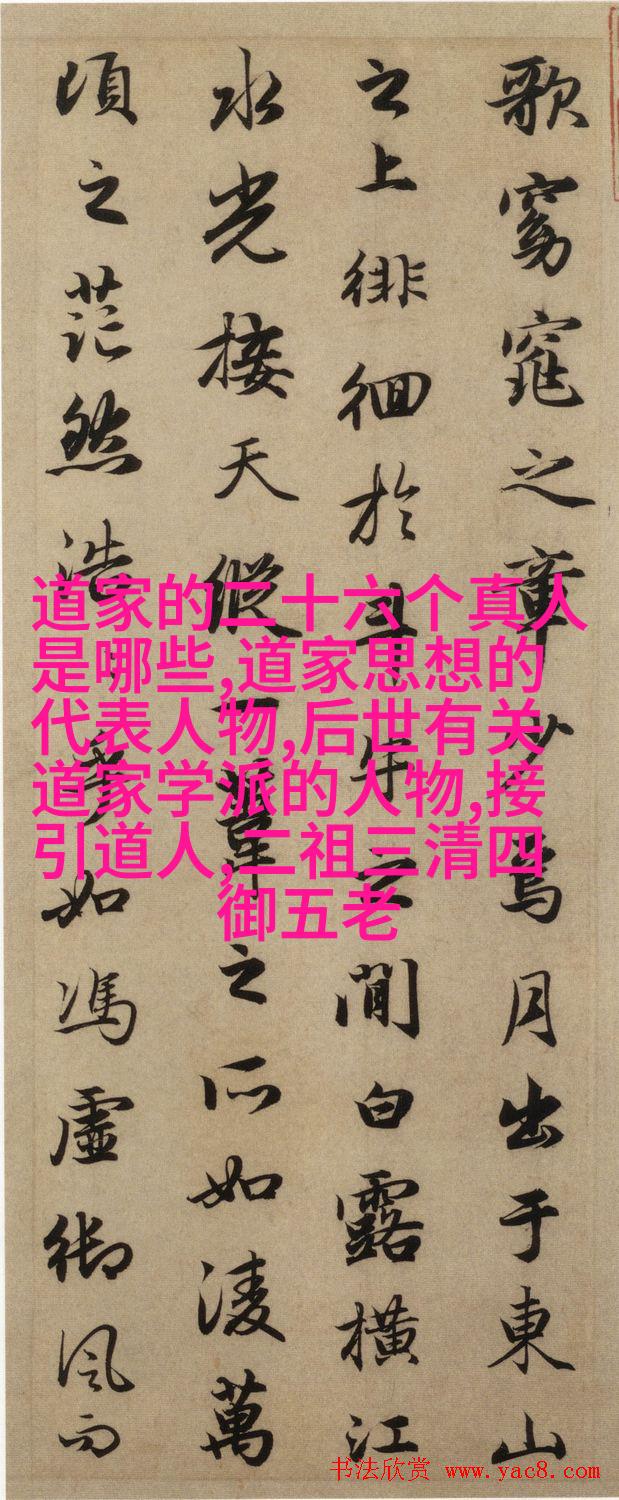 歌窈窕之章少焉月出于東山
之上徘徊於斗牛之間白露橫江
水光接天縱一葦之所如淩萬
頃之茫然浩〻乎如馮虛御風而
道家的二十六个真人
是哪些,道家思想的
代表人物,后世有关
道家学派的人物,接
引道人,二祖三清四
御五老
书法欣赏 www.yac8.com